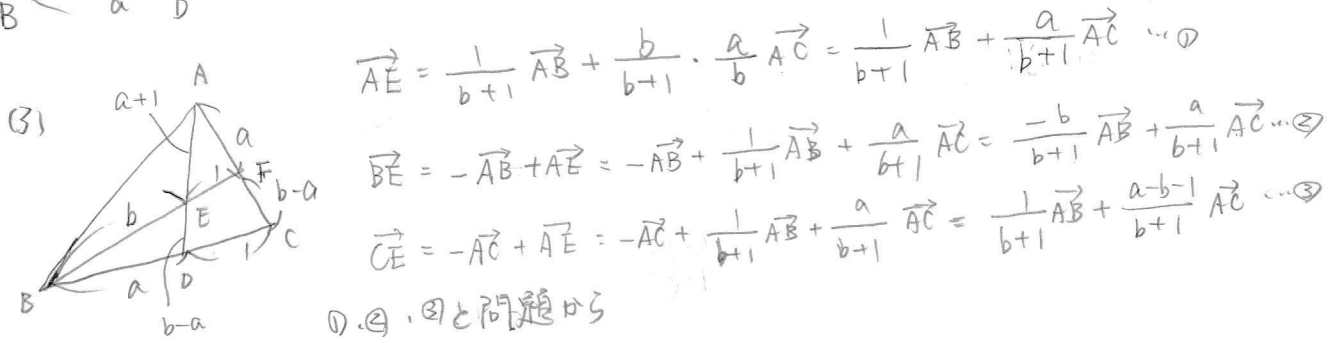 B a D
(3)
A
a+1
a
1
F
b-a
b
E
C
1
B
a
D
b-a
\overrightarrow{AE} = \frac{1}{b+1} \overrightarrow{AB} + \frac{b}{b+1} \cdot \frac{a}{b} \overrightarrow{AC} = \frac{1}{b+1} \overrightarrow{AB} + \frac{a}{b+1} \overrightarrow{AC} …①
\overrightarrow{BE} = -\overrightarrow{AB} + \overrightarrow{AE} = -\overrightarrow{AB} + \frac{1}{b+1} \overrightarrow{AB} + \frac{a}{b+1} \overrightarrow{AC} = \frac{-b}{b+1} \overrightarrow{AB} + \frac{a}{b+1} \overrightarrow{AC} …②
\overrightarrow{CE} = -\overrightarrow{AC} + \overrightarrow{AE} = -\overrightarrow{AC} + \frac{1}{b+1} \overrightarrow{AB} + \frac{a}{b+1} \overrightarrow{AC} = \frac{1}{b+1} \overrightarrow{AB} + \frac{a-b-1}{b+1} \overrightarrow{AC} …③
①.②.③と問題から